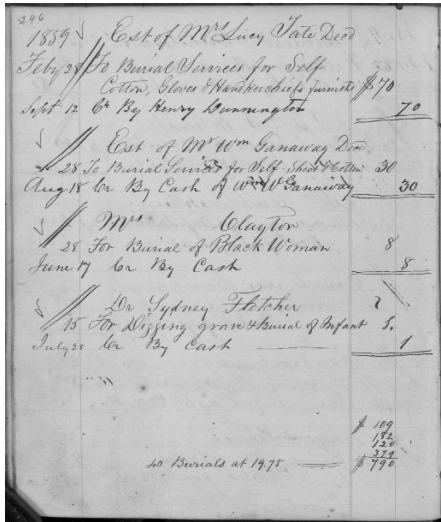 246
1859 Est of Mrs Lucy Tate Decd
Feby 28 To Burial Services for Self
Cotton, Gloves & Hankerchiefs furnishd $70
Sept 12 Cr By Henry Dunnington 70
Est of Mr Wm Ganaway Decd
28 To Burial Services for Self Sheet & Cotton 30
Aug 18 Cr By Cash of Wm W Ganaway 30
Mrs Clayton
28 For Burial of Black Woman 8
June 17 Cr By Cash 8
Dr Sydney Fletcher
15 For Digging grave & Burial of Infant
July 25 Cr By Cash 1
$ 109
182
120
379
40 Burials at 19.75 $ 790